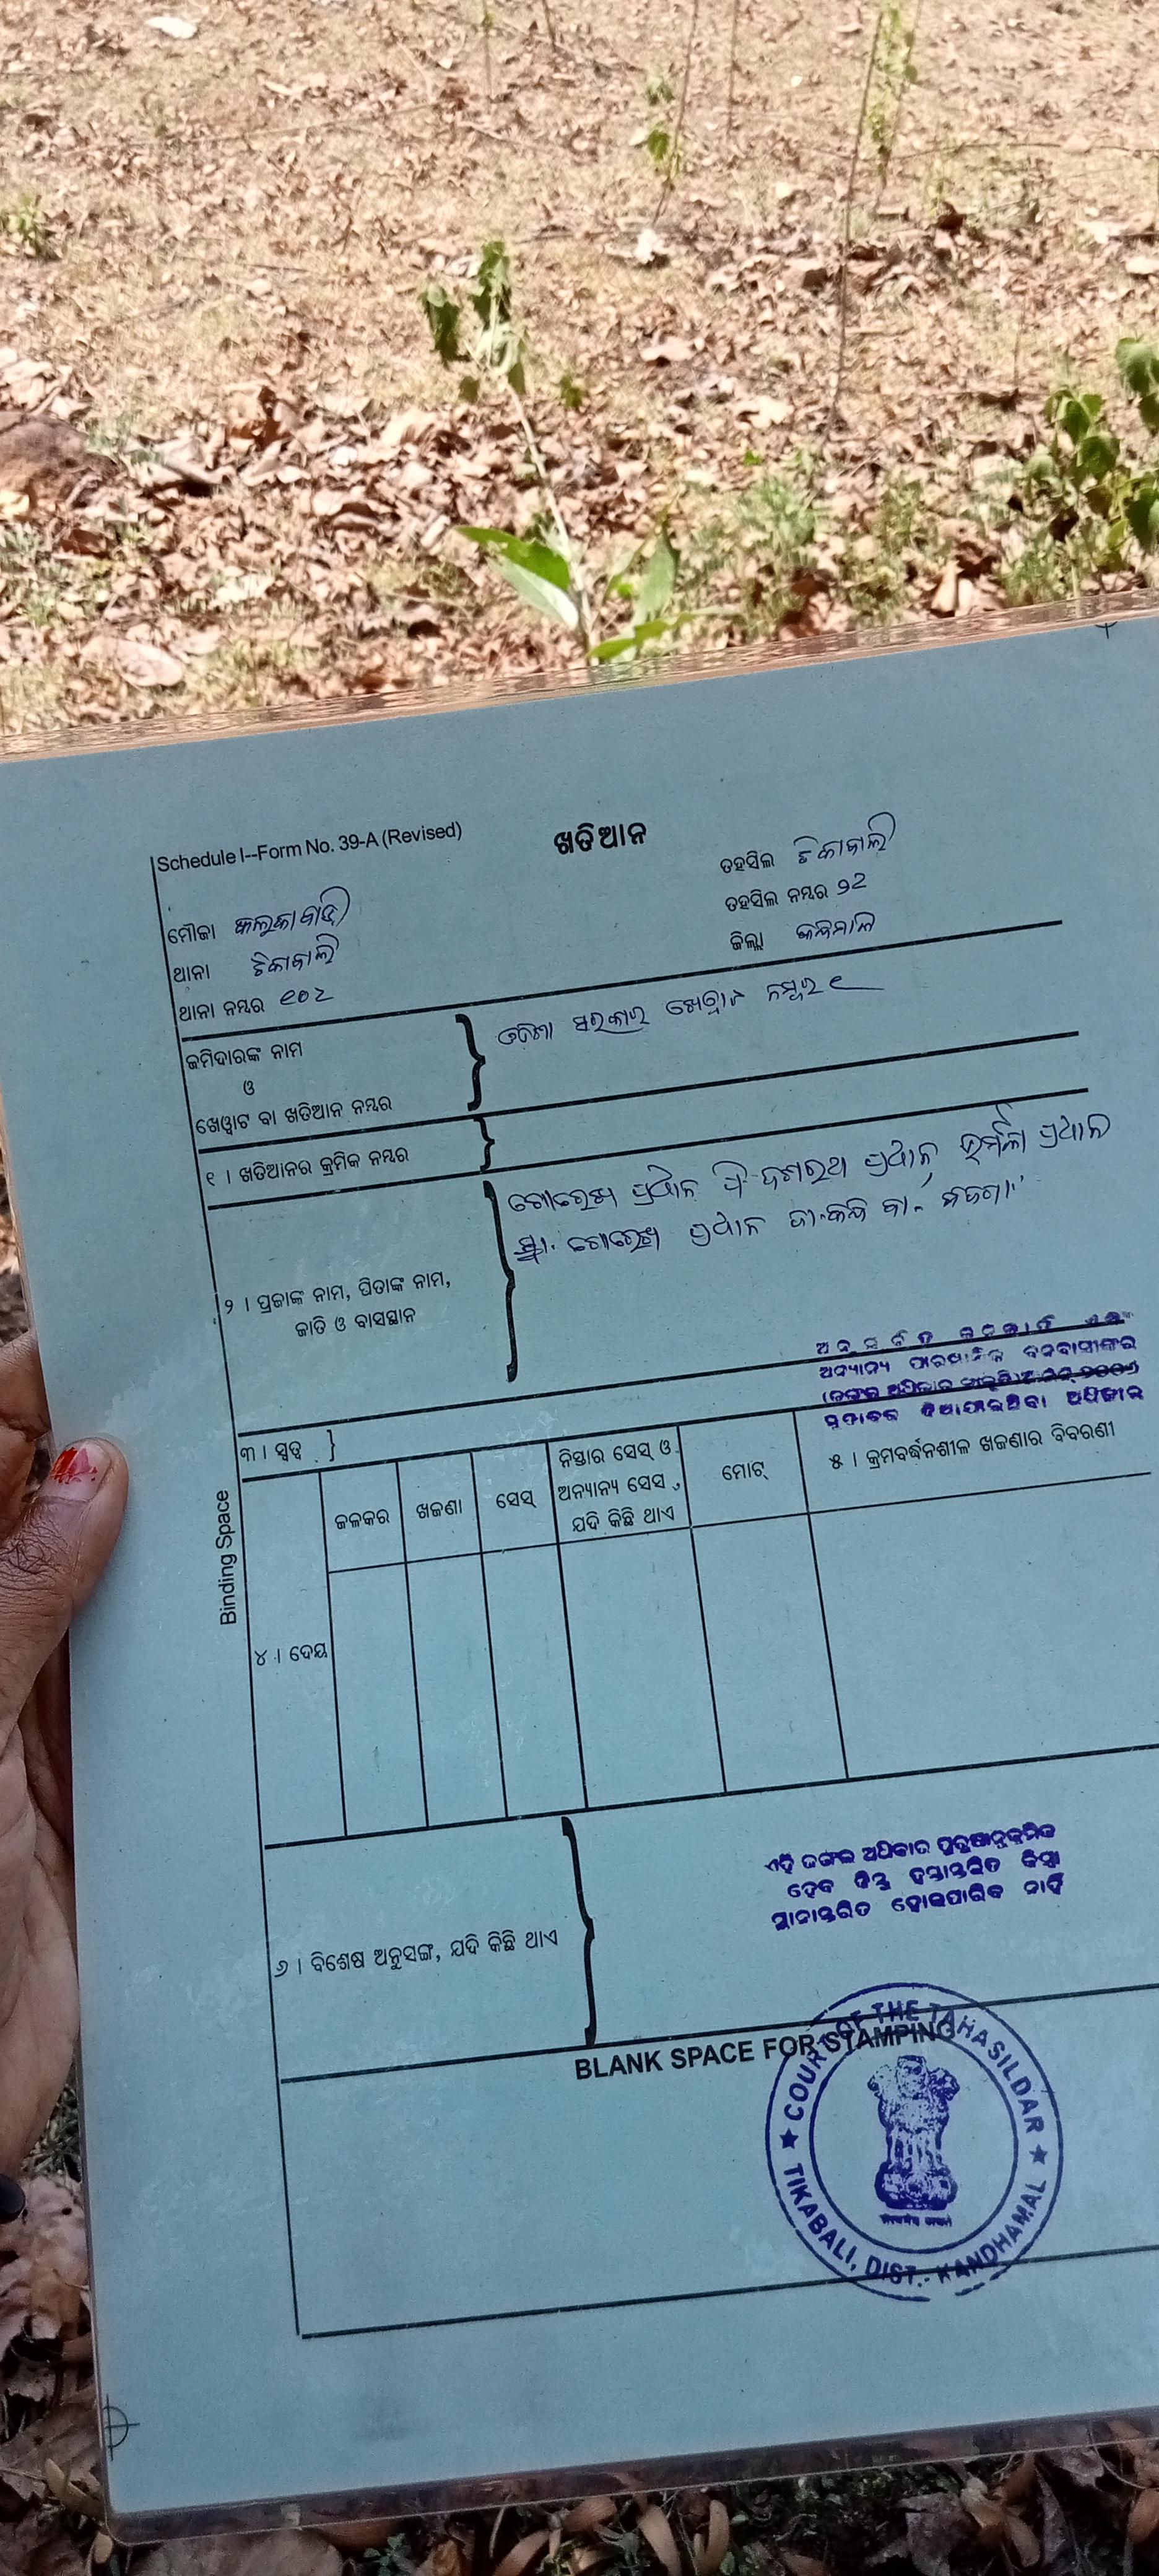 Schedule I--Form No. 39-A (Revised)
ଖତିଆନ
ମୌଜା
ତହସିଲ ଟିକାବାଲି
ଥାନା ଟିକାବାଲି
ତହସିଲ ନମ୍ବର
ଥାନା ନମ୍ବର ୧୦୪
ଜିଲ୍ଲା କନ୍ଧମାଳ
ଜମିଦାରଙ୍କ ନାମ
ଓ
ଖେୱାଟ ବା ଖତିଆନ ନମ୍ବର
ଓଡିଶା ସରକାର ଖେୱାଟ ନମ୍ବର ୧
୧ । ଖତିଆନର କ୍ରମିକ ନମ୍ବର
୨ । ପ୍ରଜାଙ୍କ ନାମ, ପିତାଙ୍କ ନାମ,
ଜାତି ଓ ବାସସ୍ଥାନ
ପ୍ରଧାନ ପି- ଦଶରଥ ପ୍ରଧାନ ପ୍ରଧାନ
ସ୍ୱା- ପ୍ରଧାନ ଜା-କନ୍ଧ ବା-
ଅନୁସୂଚିତ ଜନଜାତି ଏବଂ
ଅନ୍ୟାନ୍ୟ ପାରମ୍ପାରିକ ବନବାସୀଙ୍କର
(ଜଙ୍ଗଲ ଅଧିକାର ସ୍ୱୀକୃତି) ଆଇନ୍ ୨୦୦୬
ଦିଆଯାଇଥିବା ଅଧିକାର
୩ । ସ୍ୱତ୍ୱ
Binding Space
୪ । ଦେୟ
ଜଳକର
ଖଜଣା
ସେସ୍
ନିସ୍ତାର ସେସ୍ ଓ
ଅନ୍ୟାନ୍ୟ ସେସ,
ଯଦି କିଛି ଥାଏ
ମୋଟ୍
୫ । କ୍ରମବର୍ଦ୍ଧନଶୀଳ ଖଜଣାର ବିବରଣୀ
୬ । ବିଶେଷ ଅନୁସଙ୍ଗ, ଯଦି କିଛି ଥାଏ
ଏହି ଜଙ୍ଗଲ ଅଧିକାର ପୁରୁଷାନୁକ୍ରମିକ
ହେବ କିନ୍ତୁ ହସ୍ତାନ୍ତରିତ କିମ୍ବା
ସ୍ଥାନାନ୍ତରିତ ହୋଇପାରିବ ନାହିଁ
BLANK SPACE FOR STAMPING
COURT OF THE TAHASILDAR
TIKABALI, DIST.- KANDHAMAL